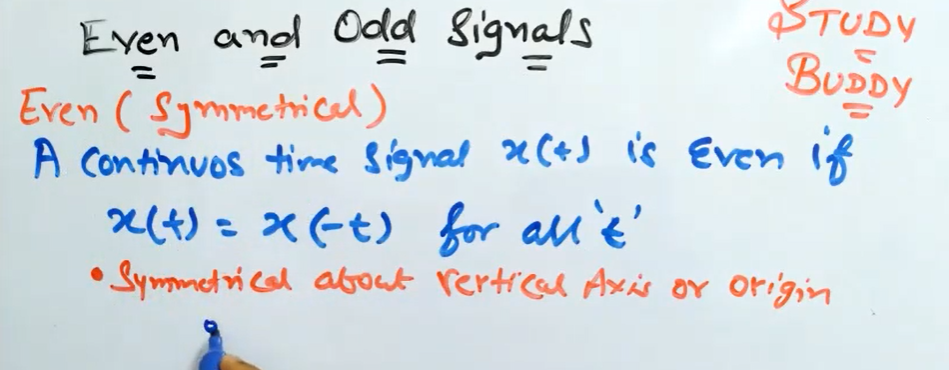 Even and Odd Signals
STUDY
BUDDY
Even (Symmetrical)
A Continuos time Signal x(t) is Even if
x(t) = x(-t) for all 't'
• Symmetrical about Vertical Axis or origin